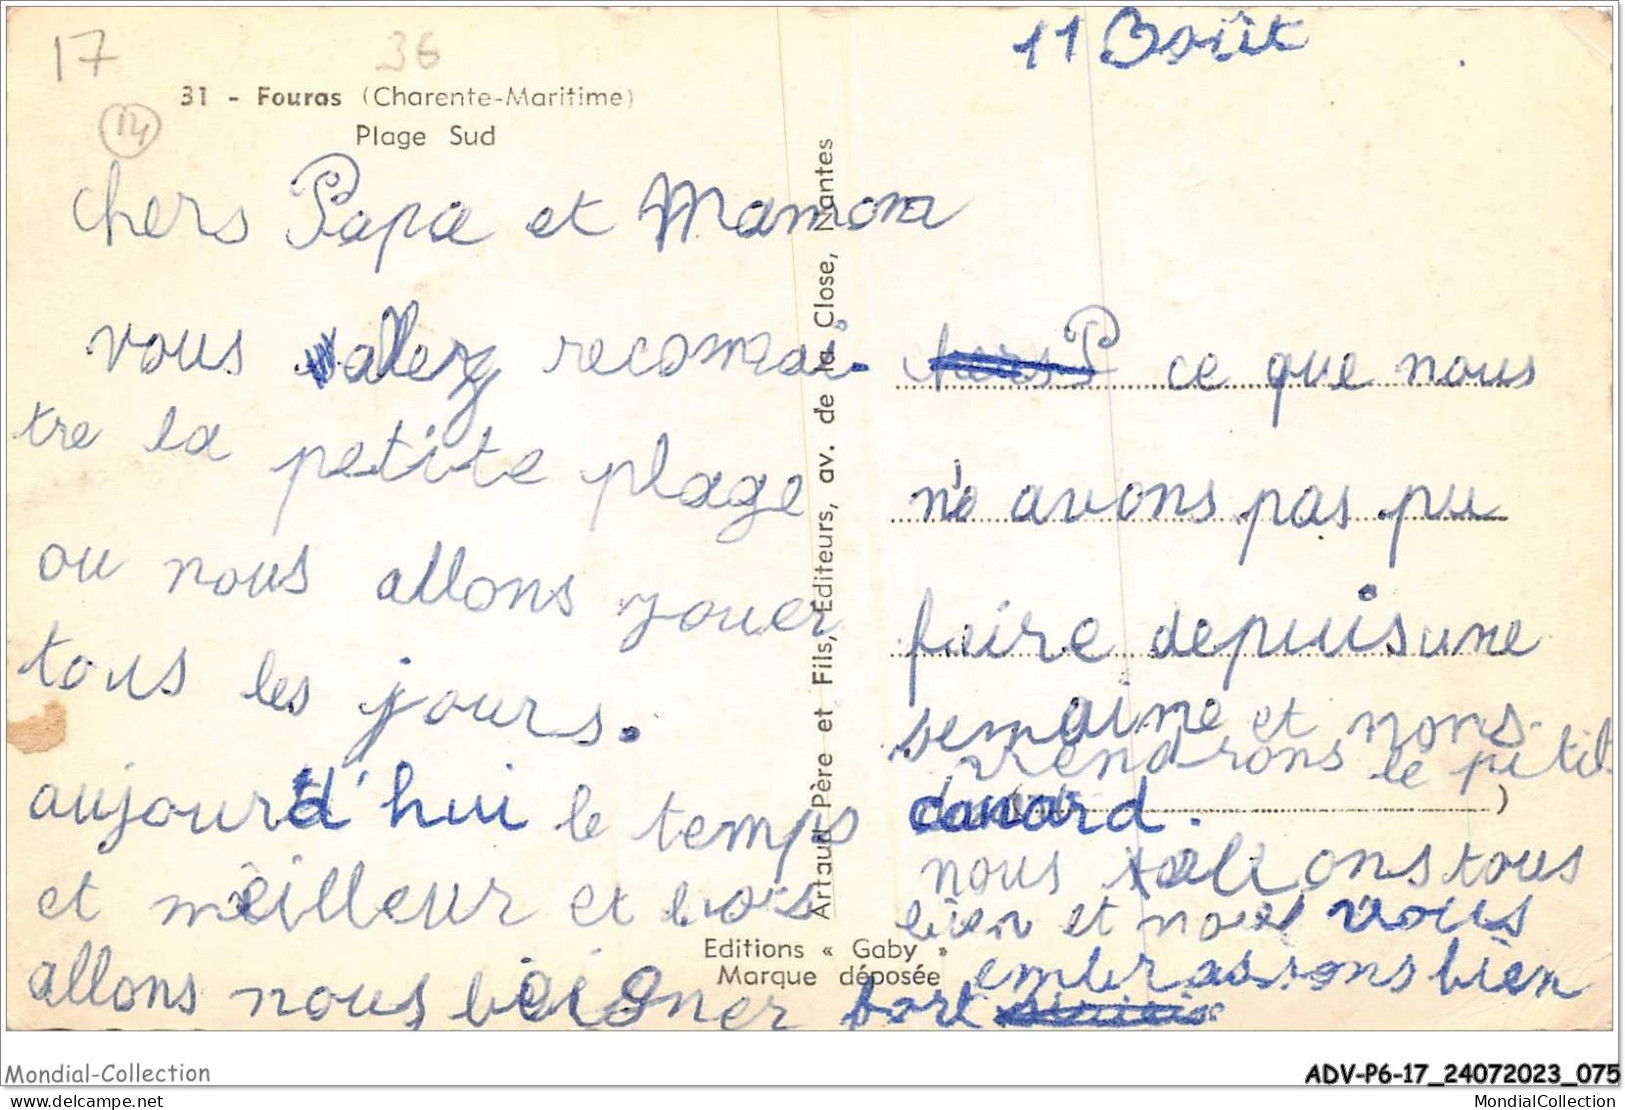 17
36
11 Août
31 - Fouras (Charente-Maritime)
14
Plage Sud
chers Papa et Maman
vous allez reconnai-
tre la petite plage
ou nous allons jouer
tous les jours.
aujourd'hui le temps
et meilleur et
allons nous baigner
ce que nous
ne avons pas pu
faire depuis une
semaine et nous
rendrons le petit
canard.
nous allons tous
bien et nous vous
embrassons bien
fort
Artaud Père et Fils, Editeurs, av. de la Close, Nantes
Editions « Gaby »
Marque déposée
Mondial-Collection
ADV-P6-17_24072023_075
delcampe.net
MondialCollection